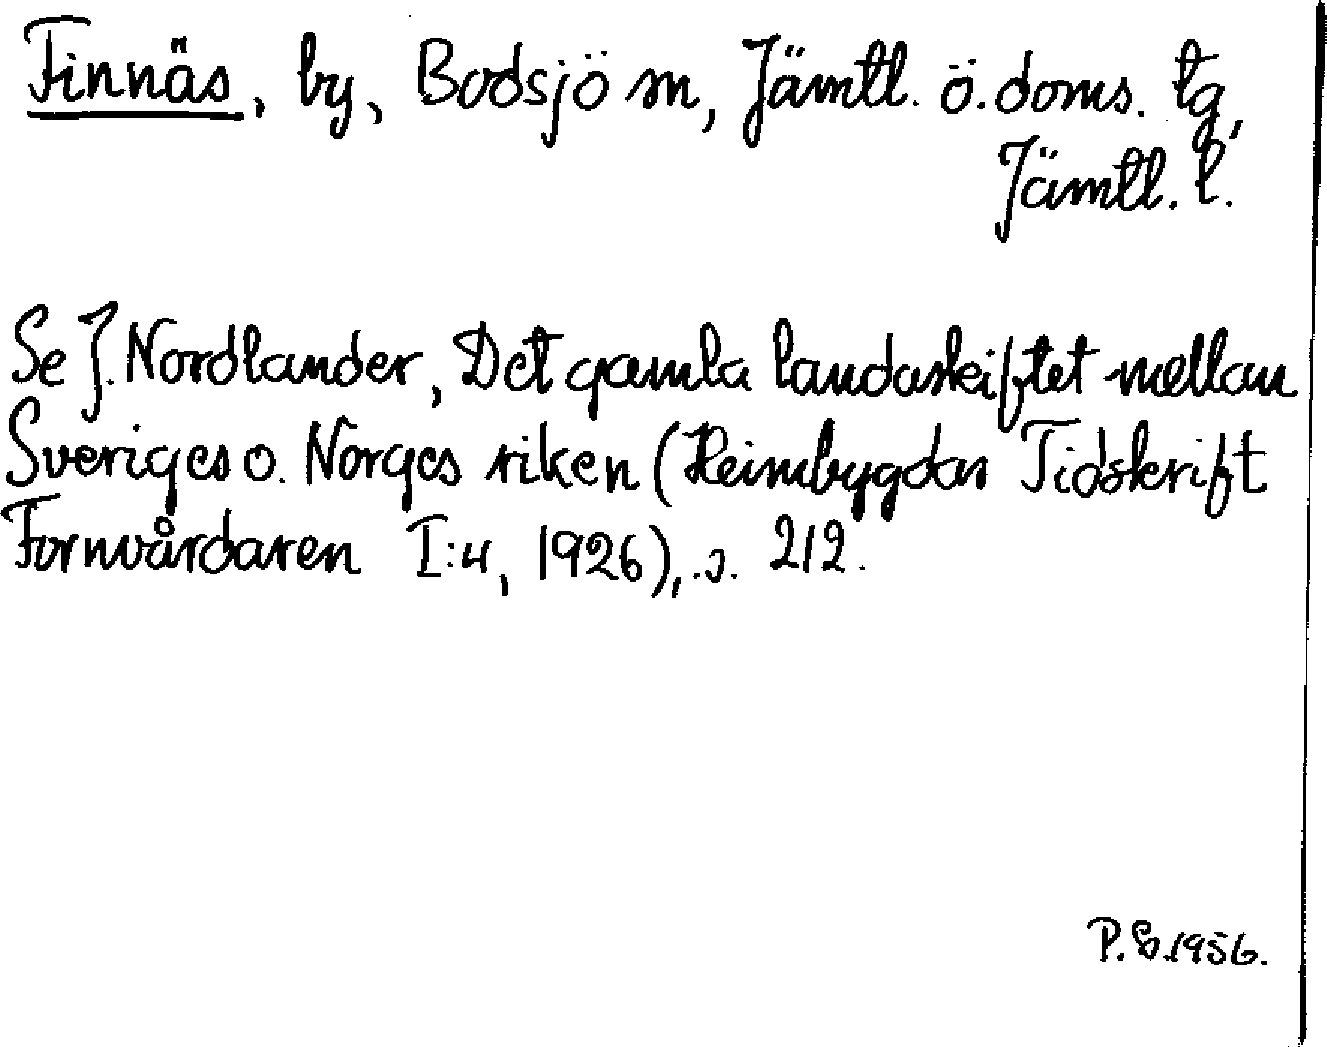 Finnäs, by, Bodsjö sn, Jämtl. ö. doms. tg,
Jämtl. l.
Se J. Nordlander, Det gamla landaskiftet mellan
Sveriges o. Norges riken (Heimbygdas Tidskrift
Fornvårdaren I:4, 1926), s. 212.
P. S. 1956.